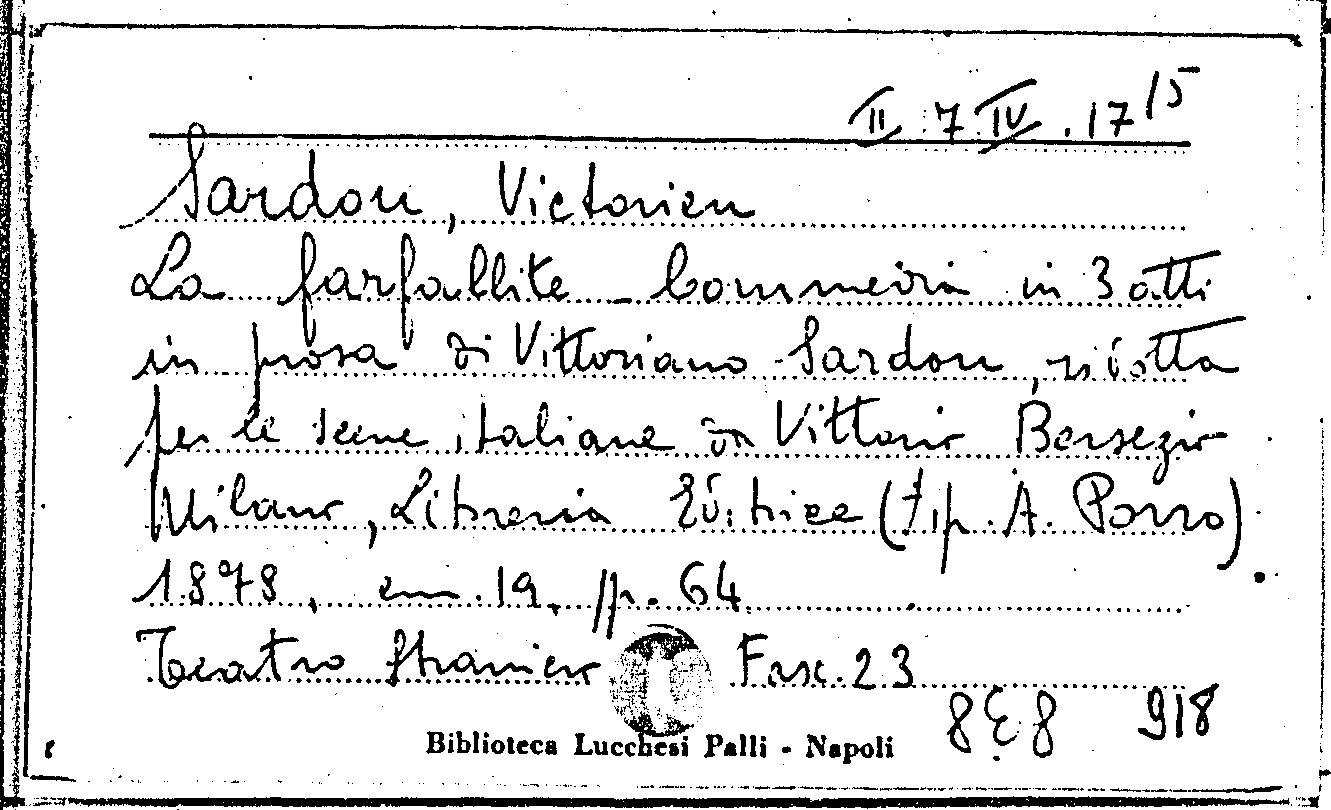 II 7 IV . 17 15
Sardou, Victorien
La farfallite - Commedia in 3 atti
in prosa di Vittoriano Sardou, ridotta
per le scene italiane da Vittorio Bersezio
Milano, Libreria Editrice (Tip. A. Porro)
1878, cm. 19, pp. 64
Teatro Straniero Fasc. 23
918
Biblioteca Lucchesi Palli - Napoli